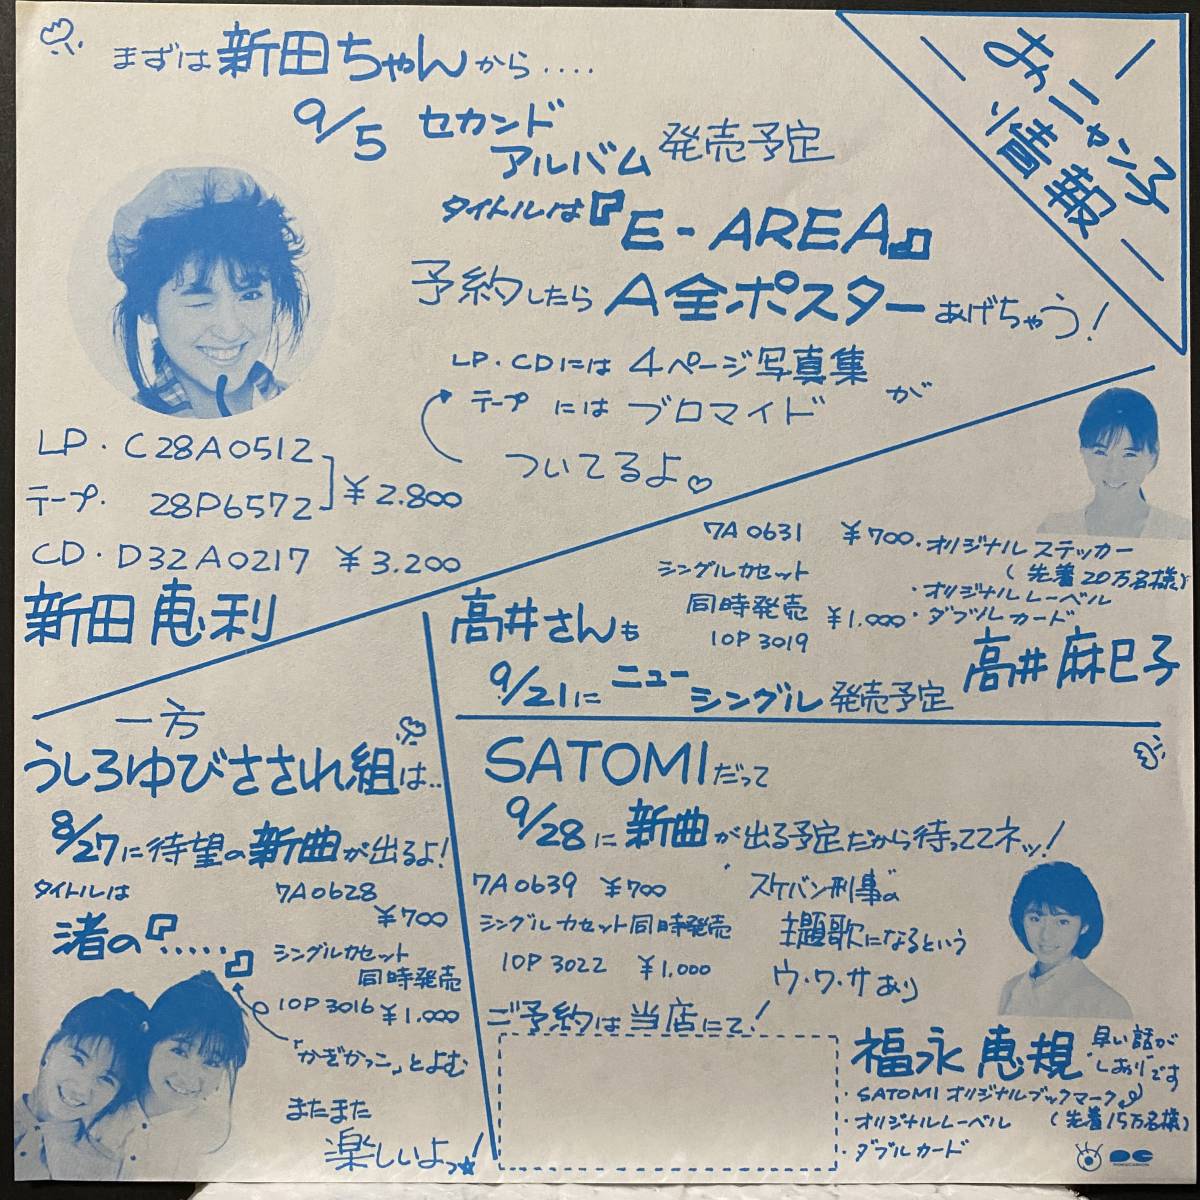 おニャン子
情報
まずは新田ちゃんから....
9/5 セカンド
アルバム 発売予定
タイトルは『E-AREA』
予約したらA全ポスターあげちゃう!
LP・CDには4ページ写真集が
テープにはブロマイド
ついてるよ♡
LP・C28A0512
テープ・28P6572
¥2.800
CD・D32A0217 ¥3.200
新田恵利
高井さんも
9/21にニューシングル発売予定
7A0631 ¥700
シングルカセット
同時発売
10P3019 ¥1.000
・オリジナルステッカー
(先着20万名様)
・オリジナルレーベル
・ダブルカード
高井麻巳子
一方
うしろゆびさされ組は..
8/27に待望の新曲が出るよ!
タイトルは
渚の『.....』
7A0628
¥700
シングルカセット
同時発売
10P3016 ¥1.000
「かぎかっこ」とよむ
またまた
楽しいよっ★!
SATOMIだって
9/28に新曲が出る予定だから待っててネッ!
7A0639 ¥700
シングルカセット同時発売
10P3022 ¥1.000
"スケバン刑事"の
主題歌になるという
ウ・ワ・サあり
ご予約は当店にて!
福永恵規
早い話が
"しおり"です
・SATOMIオリジナルブックマーク
(先着15万名様)
・オリジナルレーベル
・ダブルカード
PONYCANYON